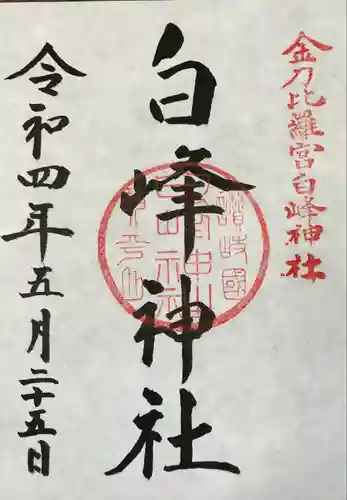 金刀比羅宮白峰神社
白峰神社
令和四年五月二十五日
讃岐國